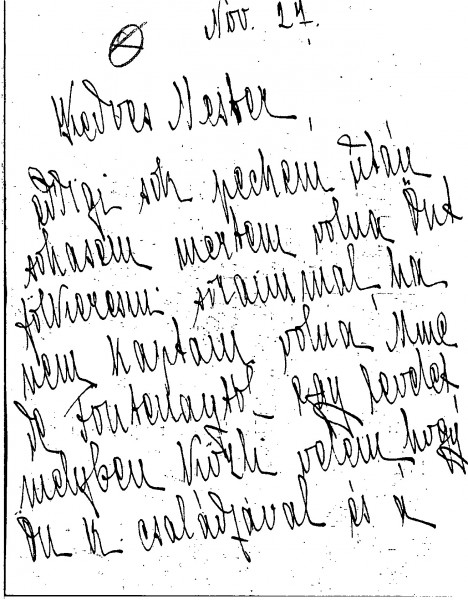 Nov. 27.
Kedves Mester,
eddigi sok pechem után
sohasem mertem volna Önt
fölkeresni soraimmal, ha
nem kaptam volna Mme
de Fontenaytól egy levelet
melyben közli velem hogy
Ön k. családjával és a